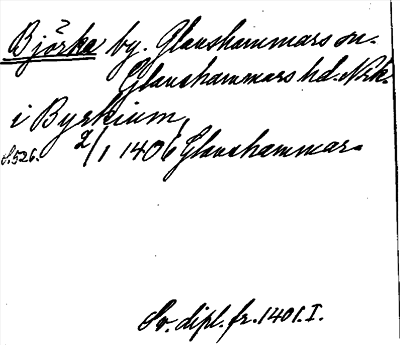 Björka by. Glanshammars sn.
Glanshammars hd. Nrk.
i Byrkium,
S. 526. 2/1 1406 Glanshammar
Sv. dipl. fr. 1401. I.